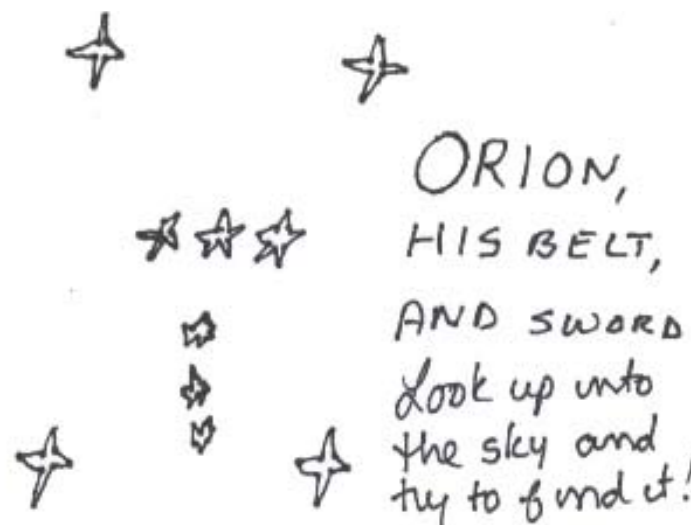 ORION,
HIS BELT,
AND SWORD
Look up into
the sky and
try to find it!